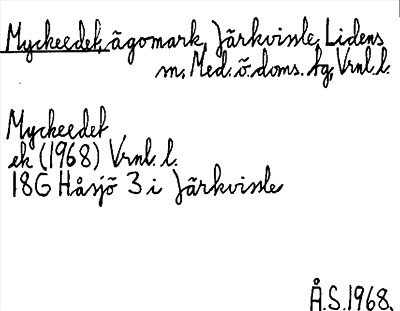 Myckeedet, ägomark, Järkvissle, Lidens
sn, Med. ö. doms. tg, Vrnl. l.
Myckeedet
ek (1968) Vrnl. l.
18G Håsjö 3 i Järkvissle
Å.S. 1968.